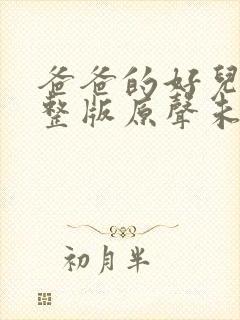 爸爸的好兒
整版原聲未
初月半